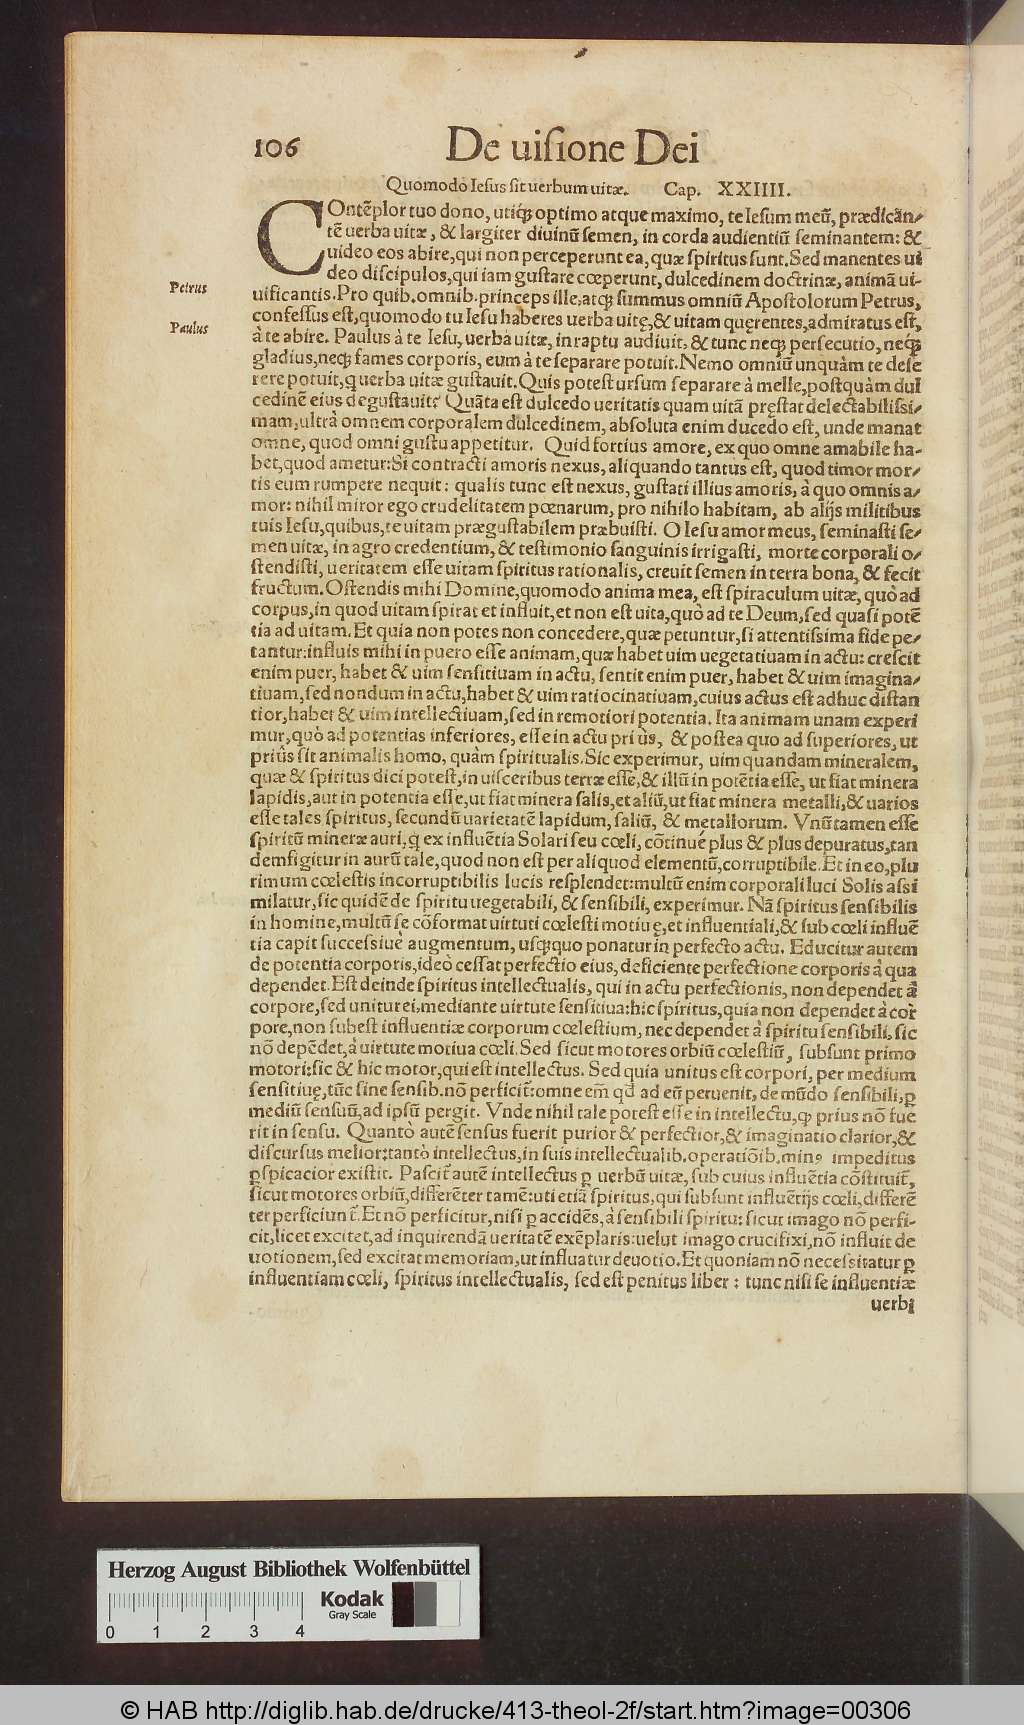 106 De uisione Dei
Quomodo Iesus sit uerbum uitæ. Cap. XXIIII.
COntẽplor tuo dono, utiq́; optimo atque maximo, te Iesum meũ, prædicãn-
tẽ uerba uitæ, & largiter diuinũ semen, in corda audientiũ seminantem: &
uideo eos abire, qui non perceperunt ea, quæ spiritus sunt. Sed manentes ui
deo discipulos, qui iam gustare cœperunt, dulcedinem doctrinæ, animã ui-
Petrus
uificantis. Pro quib. omnib. princeps ille, atq́; summus omniũ Apostolorum Petrus,
confessus est, quomodo tu Iesu haberes uerba uitę, & uitam quęrentes, admiratus est,
Paulus
à te abire. Paulus à te Iesu, uerba uitæ, in raptu audiuit, & tunc neq́; persecutio, neq́;
gladius, neq́; fames corporis, eum à te separare potuit. Nemo omniũ unquàm te dese
rere potuit, q uerba uitæ gustauit. Quis potest ursum separare à melle, postquàm dul
cedinẽ eius degustauit? Quãta est dulcedo ueritatis quam uitã pręstat delectabilissi-
mam, ultrà omnem corporalem dulcedinem, absoluta enim ducedo est, unde manat
omne, quod omni gustu appetitur. Quid fortius amore, ex quo omne amabile ha-
bet, quod ametur: Si contracti amoris nexus, aliquando tantus est, quod timor mor-
tis eum rumpere nequit: qualis tunc est nexus, gustati illius amoris, à quo omnis a-
mor: nihil miror ego crudelitatem pœnarum, pro nihilo habitam, ab alijs militibus
tuis Iesu, quibus, te uitam prægustabilem præbuisti. O Iesu amor meus, seminasti se-
men uitæ, in agro credentium, & testimonio sanguinis irrigasti, morte corporali o-
stendisti, ueritatem esse uitam spiritus rationalis, creuit semen in terra bona, & fecit
fructum. Ostendis mihi Domine, quomodo anima mea, est spiraculum uitæ, quò ad
corpus, in quod uitam spirat et influit, et non est uita, quò ad te Deum, sed quasi potẽ
tia ad uitam. Et quia non potes non concedere, quæ petuntur, si attentissima fide pe-
tantur: influis mihi in puero esse animam, quæ habet uim uegetatiuam in actu: crescit
enim puer, habet & uim sensitiuam in actu, sentit enim puer, habet & uim imagina-
tiuam, sed nondum in actu, habet & uim ratiocinatiuam, cuius actus est adhuc distan
tior, habet & uim intellectiuam, sed in remotiori potentia. Ita animam unam experi
mur, quò ad potentias inferiores, esse in actu priùs, & postea quo ad superiores, ut
priûs sit animalis homo, quàm spiritualis. Sic experimur, uim quandam mineralem,
quæ & spiritus dici potest, in uisceribus terræ esse, & illũ in potẽtia esse, ut fiat minera
lapidis, aut in potentia esse, ut fiat minera salis, et aliũ, ut fiat minera metalli, & uarios
esse tales spiritus, secundũ uarietatẽ lapidum, saliũ, & metallorum. Vnũ tamen esse
spiritũ mineræ auri, q̃ ex influẽtia Solari seu cœli, cõtinué plus & plus depuratus, tan
dem figitur in aurũ tale, quod non est per aliquod elementũ, corruptibile. Et in eo, plu
rimum cœlestis incorruptibilis lucis resplendet: multũ enim corporali luci Solis assi
milatur, sic quidẽ de spiritu uegetabili, & sensibili, experimur. Nã spiritus sensibilis
in homine, multũ se cõformat uirtuti cœlesti motiuę, et influentiali, & sub cœli influẽ
tia capit successiuè augmentum, usq́;quo ponatur in perfecto actu. Educitur autem
de potentia corporis, ideò cessat perfectio eius, deficiente perfectione corporis à qua
dependet. Est deinde spiritus intellectualis, qui in actu perfectionis, non dependet à
corpore, sed unitur ei, mediante uirtute sensitiua: hic spiritus, quia non dependet à cor
pore, non subest influentiæ corporum cœlestium, nec dependet à spiritu sensibili, sic
nõ depẽdet, à uirtute motiua cœli. Sed sicut motores orbiũ cœlestiũ, subsunt primo
motori: sic & hic motor, qui est intellectus. Sed quia unitus est corpori, per medium
sensitiuę, tũc sine sensib. nõ perficit̃: omne em̃ qđ ad eũ peruenit, de mũdo sensibili, ꝑ
mediũ sensuũ, ad ipsũ pergit. Vnde nihil tale potest esse in intellectu, ꝙ prius nõ fue
rit in sensu. Quantò autẽ sensus fuerit purior & perfectior, & imaginatio clarior, &
discursus melior: tantò intellectus, in suis intellectualib. operatiõib. minꝰ impeditus
ꝑspicacior existit. Pascit̃ autẽ intellectus ꝑ uerbũ uitæ, sub cuius influẽtia cõstituit̃,
sicut motores orbiũ, differẽter tamẽ: uti etiã spiritus, qui subsunt influẽtijs cœli, differẽ
ter perficiunt̃. Et nõ perficitur, nisi ꝑ accidẽs, à sensibili spiritu: sicut imago nõ perfi-
cit, licet excitet, ad inquirendã ueritatẽ exẽplaris: uelut imago crucifixi, nõ influit de
uotionem, sed excitat memoriam, ut influatur deuotio. Et quoniam nõ necessitatur ꝑ
influentiam cœli, spiritus intellectualis, sed est penitus liber: tunc nisi se influentiæ
uerbi
Herzog August Bibliothek Wolfenbüttel
Kodak
Gray Scale
0 1 2 3 4
© HAB http://diglib.hab.de/drucke/413-theol-2f/start.htm?image=00306